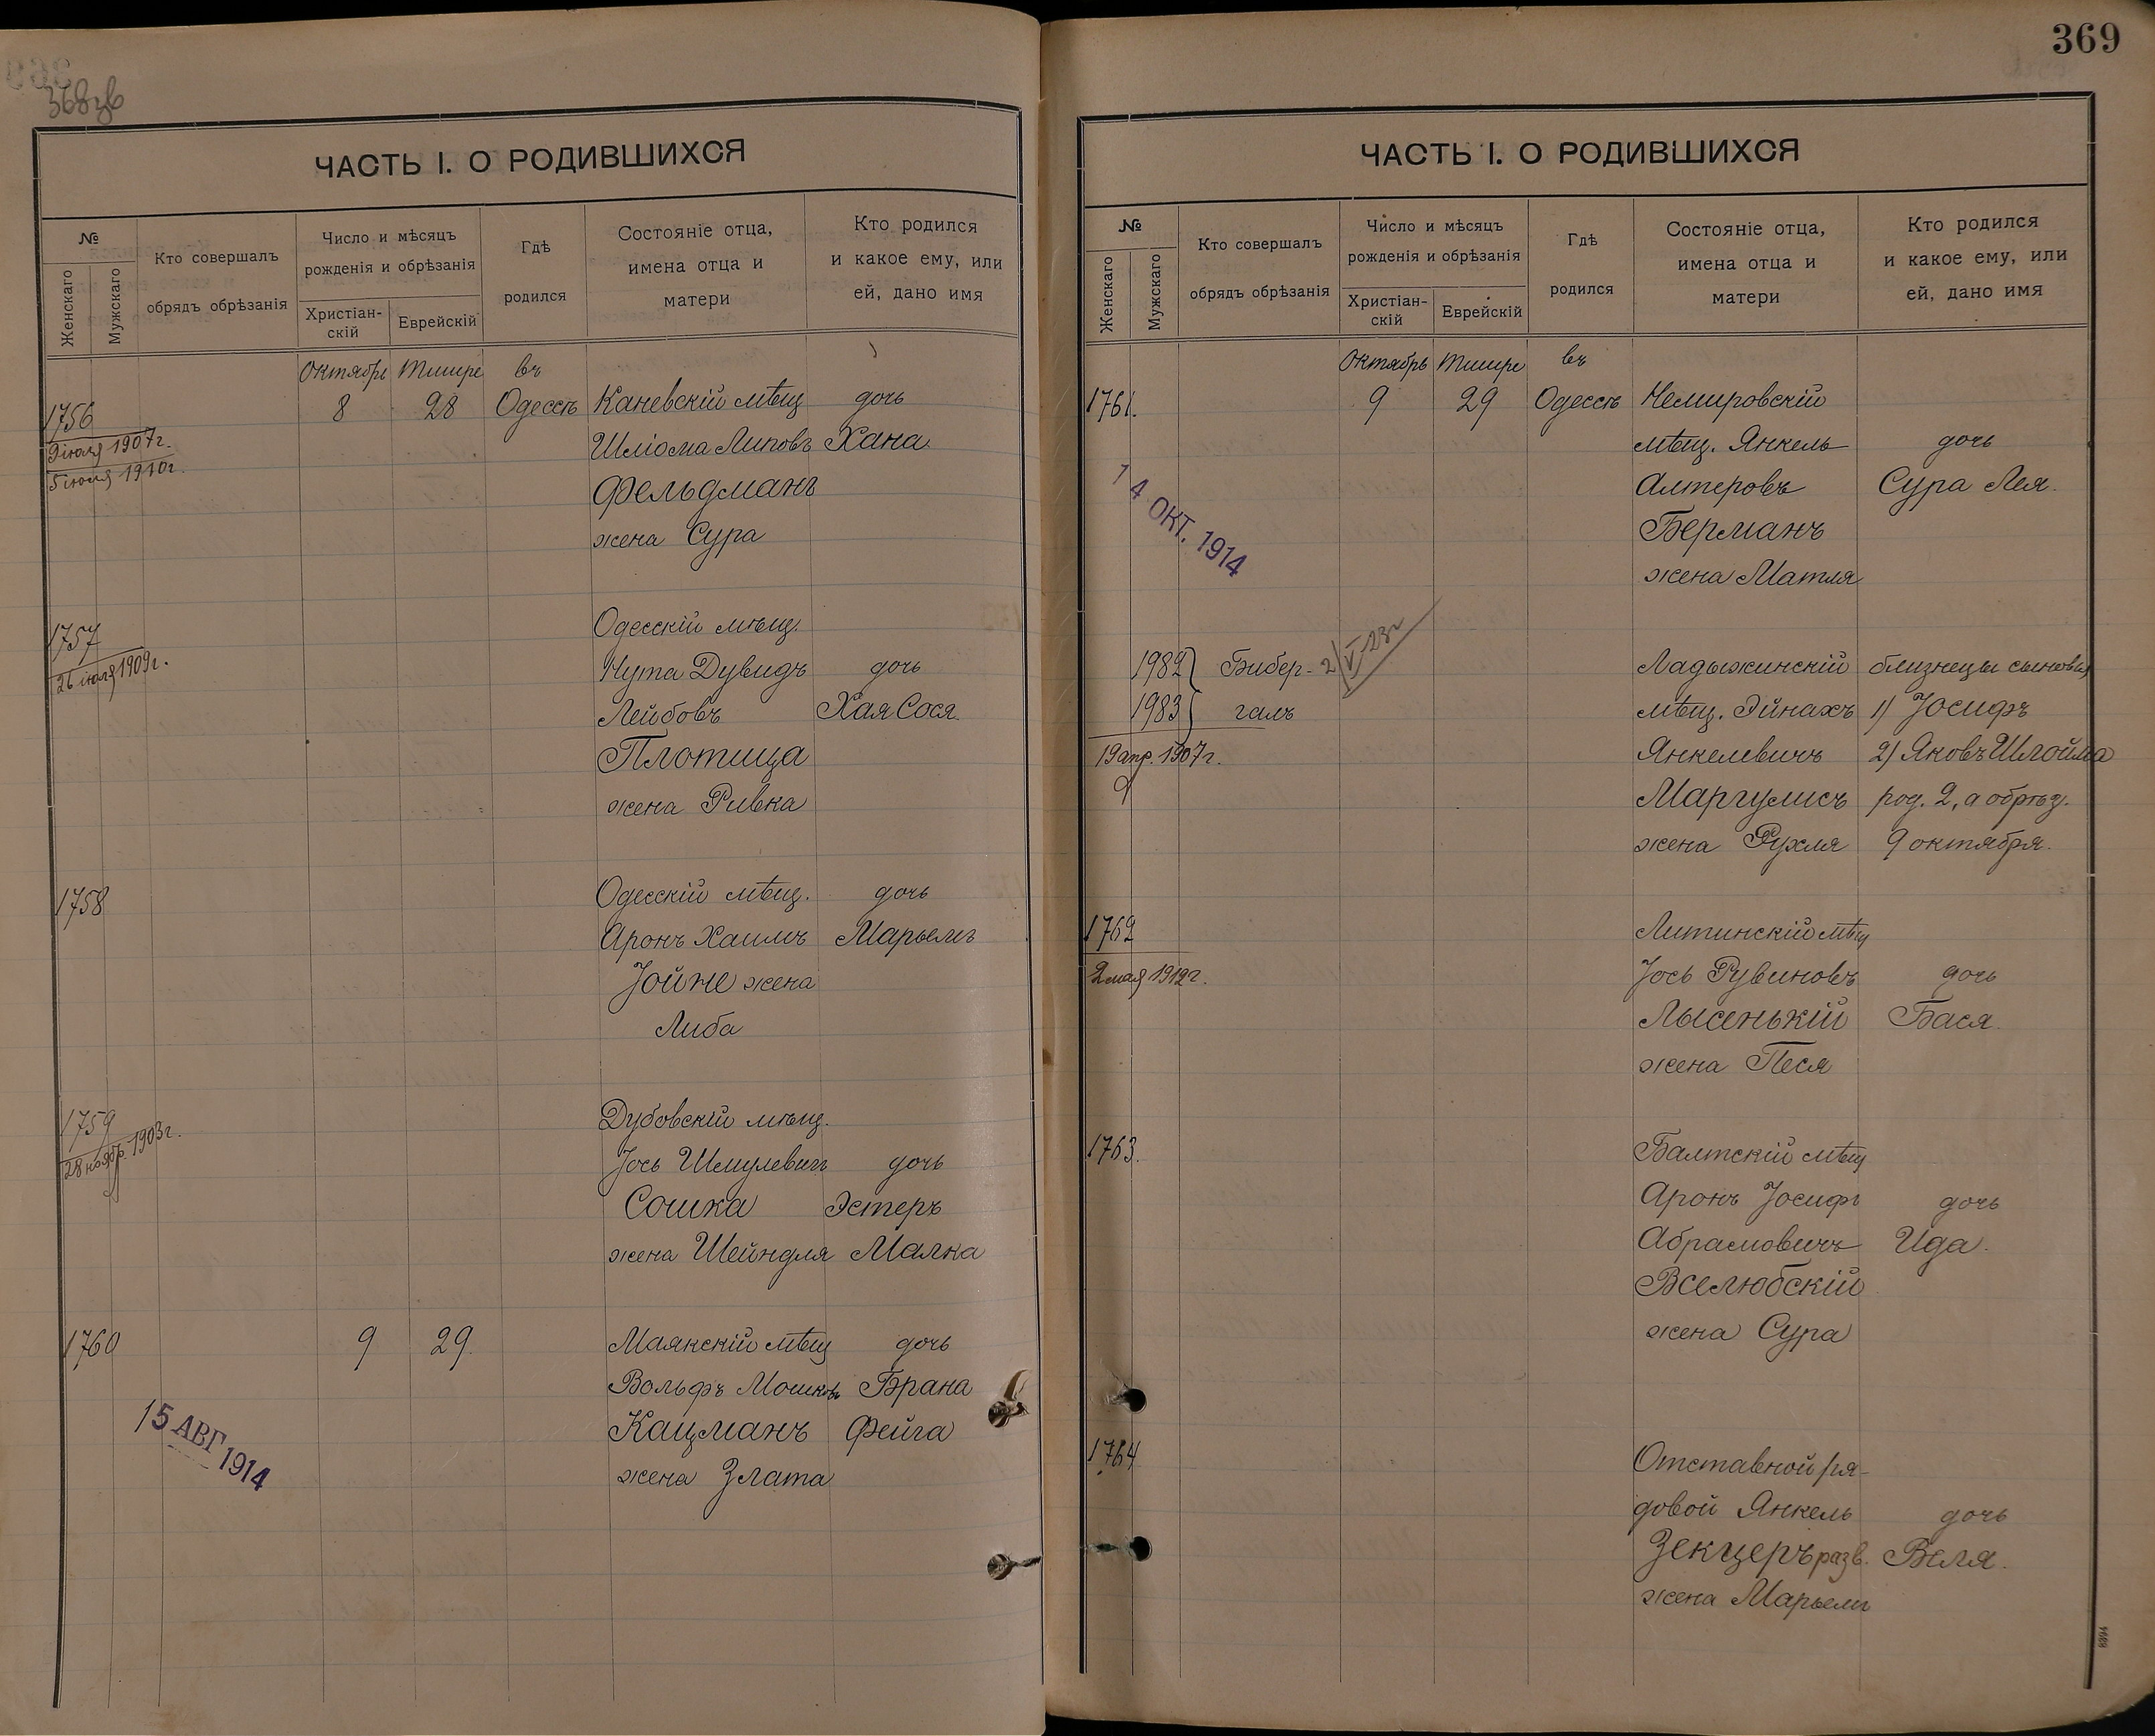 368зв
ЧАСТЬ I. О РОДИВШИХСЯ
№
Женскаго
Мужскаго
Кто совершалъ
обрядъ обрѣзанія
Число и мѣсяцъ
рожденія и обрѣзанія
Христіан-
скій
Еврейскій
Гдѣ
родился
Состояніе отца,
имена отца и
матери
Кто родился
и какое ему, или
ей, дано имя
Октябрь Тишре въ
1756 8 28 Одессѣ Каневскій мѣщ дочь
9 іюля 1907 г. Шліома Липовъ Хана
5 іюля 1910 г. Фельдманъ
жена Сура
1757 Одесскій мѣщ.
26 іюля 1909 г. Нута Дувидъ дочь
Лейбовъ Хая Сося.
Плотица
жена Ривка
1758 Одесскій мѣщ. дочь
Аронъ Хаимъ Марьемъ
Іойне жена
Либа
1759 Дубовскій мѣщ.
28 ноябр. 1903 г. Іось Шмулевичъ дочь
Сошка Эстеръ
жена Шейндля Малка
1760 9 29. Маякскій мѣщ дочь
Вольфъ Мошковъ Брана
15 АВГ 1914 Кацманъ Фейга
жена Злата
369
ЧАСТЬ I. О РОДИВШИХСЯ
№
Женскаго
Мужскаго
Кто совершалъ
обрядъ обрѣзанія
Число и мѣсяцъ
рожденія и обрѣзанія
Христіан-
скій
Еврейскій
Гдѣ
родился
Состояніе отца,
имена отца и
матери
Кто родился
и какое ему, или
ей, дано имя
Октябрь Тишре въ
1761. 9 29 Одессѣ Немировскій
мѣщ. Янкель дочь
14 ОКТ. 1914 Алтеровъ Сура Лея.
Берманъ
жена Матля
1982 Бибер- 2/VI-23г Ладыжинскій близнецы сыновья
1983 галъ мѣщ. Эйнахъ 1) Іосифъ
19 апр. 1907 г. Янкелевичъ 2) Яковъ Шлойма
Маргулисъ род. 2, а обрѣз.
жена Рухля 9 октября.
1762 Литинскій мѣщ
2 мая 1912 г. Іось Рувиновъ дочь
Лысенькій Бася.
жена Песя
1763. Балтскій мѣщ
Аронъ Іосифъ дочь
Абрамовичъ Ида.
Вселюбскій
жена Сура
1764 Отставной ря-
довой Янкель дочь
Зекцеръ разв. Веля.
жена Марьемъ
8394